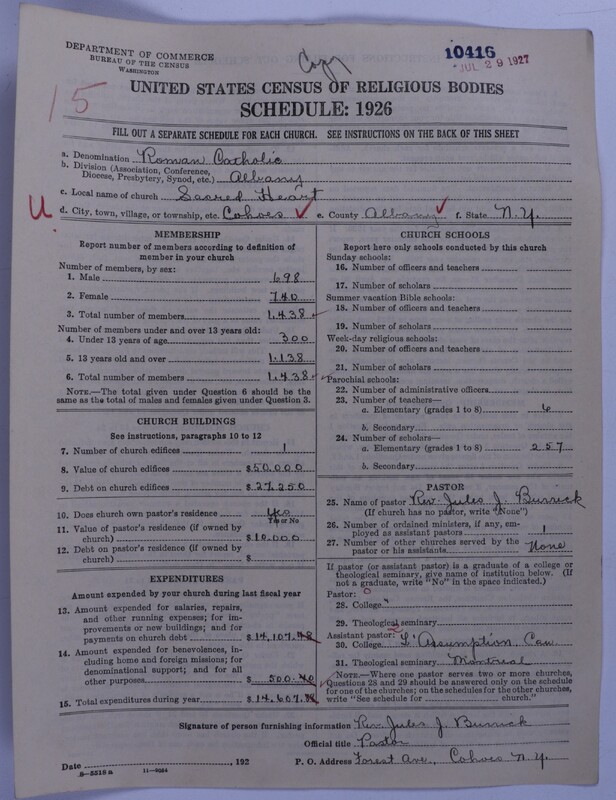 DEPARTMENT OF COMMERCE
BUREAU OF THE CENSUS
WASHINGTON
Copy
10416
JUL 29 1927
15
UNITED STATES CENSUS OF RELIGIOUS BODIES
SCHEDULE: 1926
FILL OUT A SEPARATE SCHEDULE FOR EACH CHURCH. SEE INSTRUCTIONS ON THE BACK OF THIS SHEET
a. Denomination Roman Catholic
b. Division (Association, Conference,
Diocese, Presbytery, Synod, etc.) Albany
c. Local name of church Sacred Heart
U d. City, town, village, or township, etc. Cohoes ✓ e. County Albany ✓ f. State N.Y.
MEMBERSHIP
Report number of members according to definition of
member in your church
Number of members, by sex:
1. Male 698
2. Female 740
3. Total number of members 1,438
Number of members under and over 13 years old:
4. Under 13 years of age 300
5. 13 years old and over 1,138
6. Total number of members 1,438
NOTE.—The total given under Question 6 should be
the same as the total of males and females given under Question 3.
CHURCH BUILDINGS
See instructions, paragraphs 10 to 12
7. Number of church edifices 1
8. Value of church edifices $50,000
9. Debt on church edifices $27,250
10. Does church own pastor's residence Yes
Yes or No
11. Value of pastor's residence (if owned by
church) $10,000
12. Debt on pastor's residence (if owned by
church) $
EXPENDITURES
Amount expended by your church during last fiscal year
13. Amount expended for salaries, repairs,
and other running expenses; for im-
provements or new buildings; and for
payments on church debt $14,107
14. Amount expended for benevolences,
including home and foreign missions; for
denominational support; and for all
other purposes $500.40
15. Total expenditures during year $14,607
CHURCH SCHOOLS
Report here only schools conducted by this church
Sunday schools:
16. Number of officers and teachers
17. Number of scholars
Summer vacation Bible schools:
18. Number of officers and teachers
19. Number of scholars
Week-day religious schools:
20. Number of officers and teachers
21. Number of scholars
Parochial schools:
22. Number of administrative officers
23. Number of teachers—
a. Elementary (grades 1 to 8) 6
b. Secondary
24. Number of scholars—
a. Elementary (grades 1 to 8) 257
b. Secondary
PASTOR
25. Name of pastor Rev. Jules J. Burrick
(If church has no pastor, write "None")
26. Number of ordained ministers, if any, em-
ployed as assistant pastors 1
27. Number of other churches served by the
pastor or his assistants None
If pastor (or assistant pastor) is a graduate of a college or
theological seminary, give name of institution below. (If
not a graduate, write "No" in the space indicated.)
Pastor:
28. College
29. Theological seminary
Assistant pastor:
30. College L'Assumption, Can.
31. Theological seminary Montreal
NOTE.—Where one pastor serves two or more churches,
Questions 28 and 29 should be answered only on the schedule
for one of the churches; on the schedules for the other churches,
write "See schedule for church."
Signature of person furnishing information Rev. Jules J. Burrick
Official title Pastor
Date , 192 P. O. Address Forest Ave., Cohoes N.Y.
8-5518a 11-9034